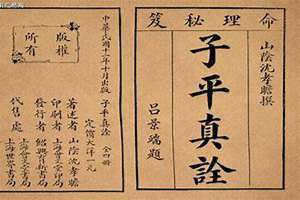 命理秘笈
山陰沈孝瞻撰
子平真詮
呂景端題
版權
所有
中華民國十二年十月出版
子平真詮 全四冊
定價大洋一元
著述者 山陰沈孝瞻
印刷者 上海書局
發行者 紹興育新書局
代售處 上海世界書局